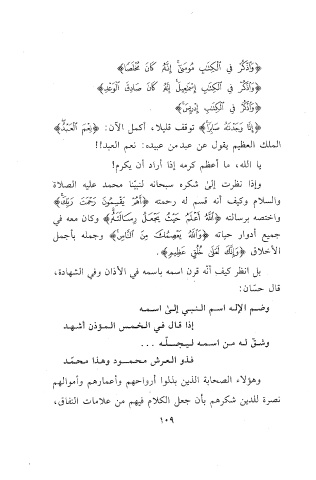 ﴿وَٱذْكُرْ فِي ٱلْكِتَٰبِ مُوسَىٰٓ إِنَّهُۥ كَانَ مُخْلَصًا﴾
﴿وَٱذْكُرْ فِي ٱلْكِتَٰبِ إِسْمَٰعِيلَ إِنَّهُۥ كَانَ صَادِقَ ٱلْوَعْدِ﴾
﴿وَٱذْكُرْ فِي ٱلْكِتَٰبِ إِدْرِيسَ﴾
﴿إِنَّا وَجَدْنَٰهُ صَابِرًا﴾ توقف قليلا، أكمل الآن: ﴿نِعْمَ ٱلْعَبْدُ﴾
الملك العظيم يقول عن عبد من عبيده: نعم العبد!!
يا الله، ما أعظم كرمه إذا أراد أن يكرم!
وإذا نظرت إلىٰ شكره سبحانه لنبيّنا محمد عليه الصلاة
والسلام وكيف أنه قسم له رحمته ﴿أَهُمْ يَقْسِمُونَ رَحْمَتَ رَبِّكَ﴾
واختصه برسالته ﴿ٱللَّهُ أَعْلَمُ حَيْثُ يَجْعَلُ رِسَالَتَهُۥ﴾ وكان معه في
جميع أدوار حياته ﴿وَٱللَّهُ يَعْصِمُكَ مِنَ ٱلنَّاسِ﴾ وجمله بأجمل
الأخلاق ﴿وَإِنَّكَ لَعَلَىٰ خُلُقٍ عَظِيمٍ﴾.
بل انظر كيف أنّه قرن اسمه باسمه في الأذان وفي الشهادة،
قال حسّان:
وضم الإلٰه اسم النبي إلىٰ اسمه
إذا قال في الخمس المؤذن أشهد
وشقّ له من اسمه ليجلّه ...
فذو العرش محمود وهذا محمّد
وهؤلاء الصحابة الذين بذلوا أرواحهم وأعمارهم وأموالهم
نصرة للدين شكرهم بأن جعل الكلام فيهم من علامات النفاق،
١٠٩